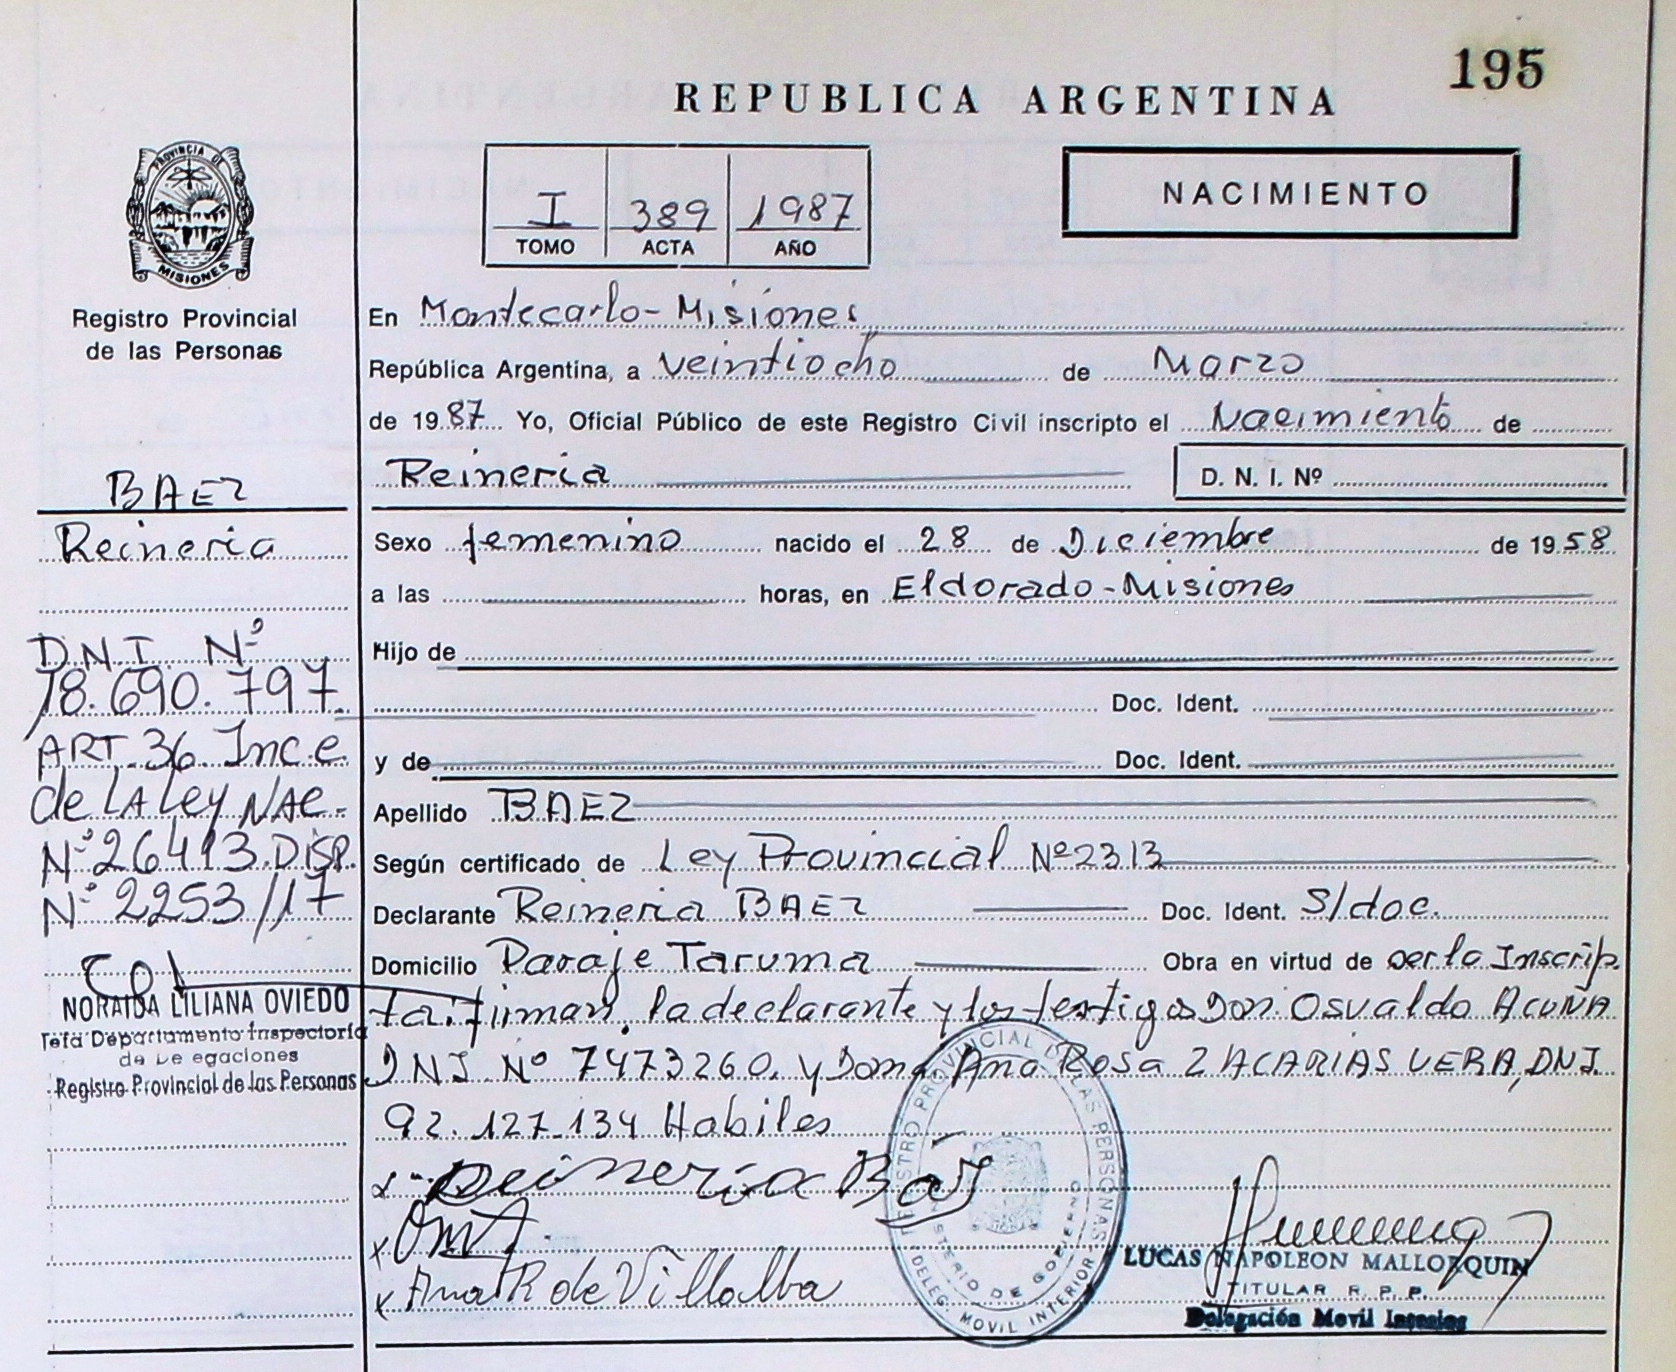 195
REPUBLICA ARGENTINA
PROVINCIA DE
MISIONES
I 389 1987
TOMO ACTA AÑO
NACIMIENTO
Registro Provincial
de las Personas
En Montecarlo-Misiones
República Argentina, a veintiocho de Marzo
de 1987 Yo, Oficial Público de este Registro Civil inscripto el Nacimiento de
Reineria D. N. I. Nº
BAEZ
Reineria
D.N.I. Nº
18.690.797
ART. 36. Inc.e.
de LA Ley NAC.
Nº 26413.DISP.
Nº 2253/17
NORAIDA LILIANA OVIEDO
Jefa Departamento Inspectoria
de De egaciones
Registro Provincial de las Personas
Sexo femenino nacido el 28 de Diciembre de 1958
a las horas, en Eldorado-Misiones
Hijo de
Doc. Ident.
y de Doc. Ident.
Apellido BAEZ
Según certificado de Ley Provincial Nº2313
Declarante Reineria BAEZ Doc. Ident. S/doc.
Domicilio Paraje Taruma Obra en virtud de ser la Inscrip.
ta. firman, la declarante y los testigos Don Osvaldo ACUÑA
DNI Nº 7473260. y Dona Ana Rosa ZACARIAS VERA, DNI.
92.127.134 Habiles
x Reineria Baez
x
x Ana R de Villalba
REGISTRO PROVINCIAL DE LAS PERSONAS
MINISTERIO DE GOBIERNO
DELEG. MOVIL INTERIOR
LUCAS NAPOLEON MALLORQUIN
TITULAR R. P. P.
Delegación Movil